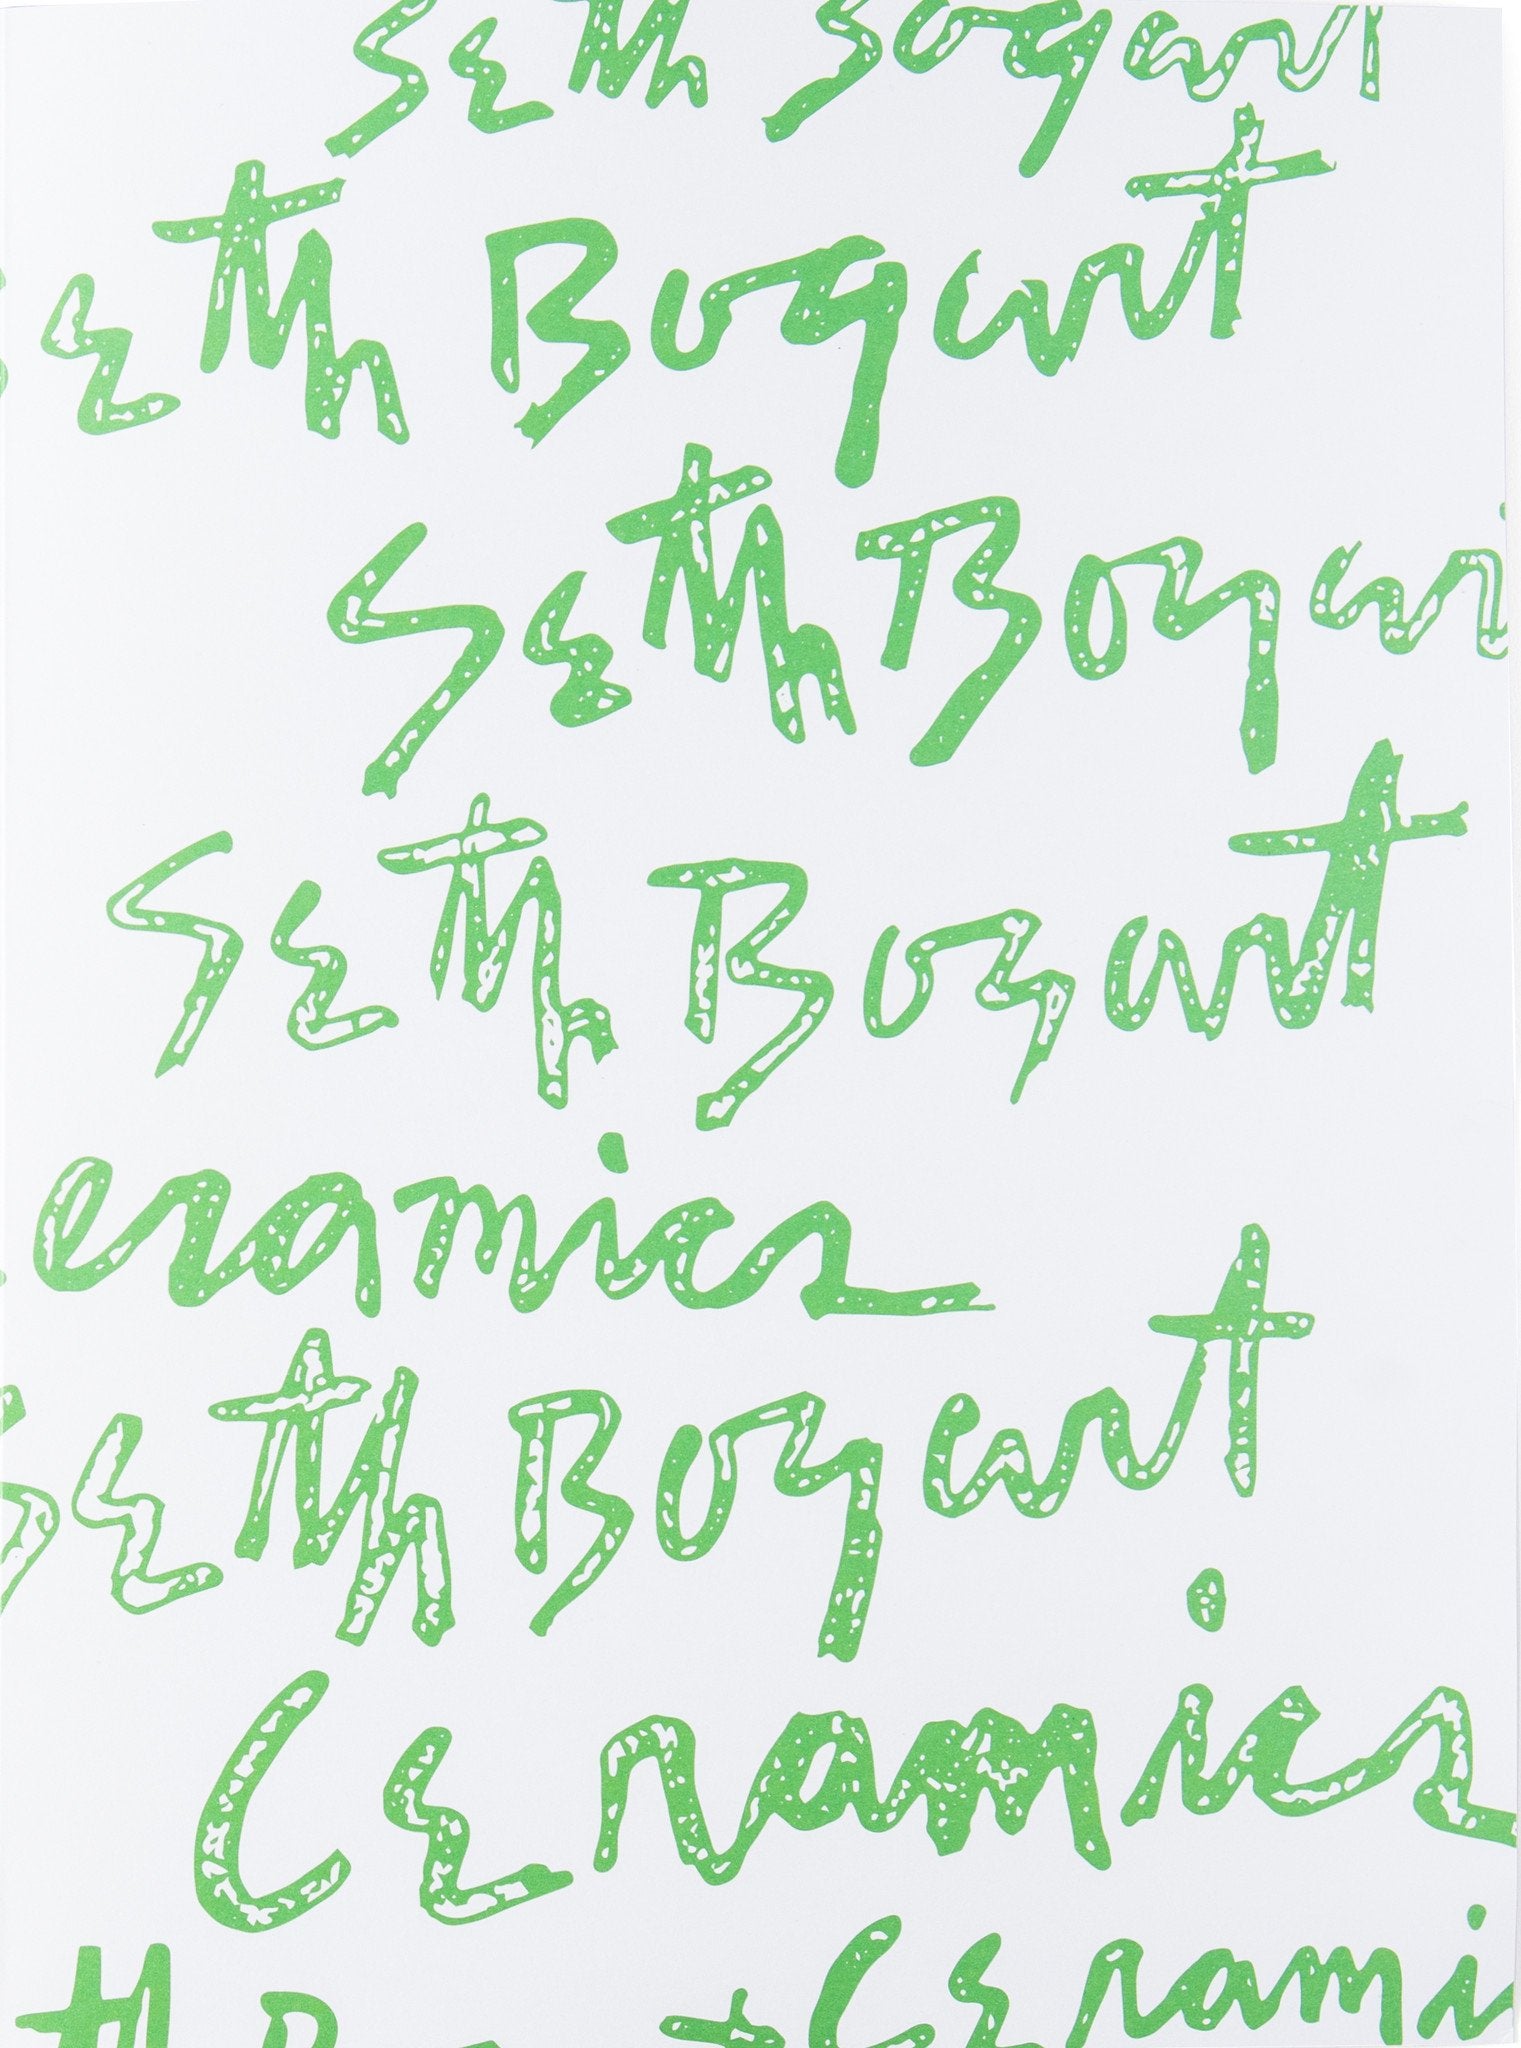 Seth Bogart
Seth Bogart
Seth Bogart
Seth Bogart
eramics
Seth Bogart
Ceramics
th B t Cerami